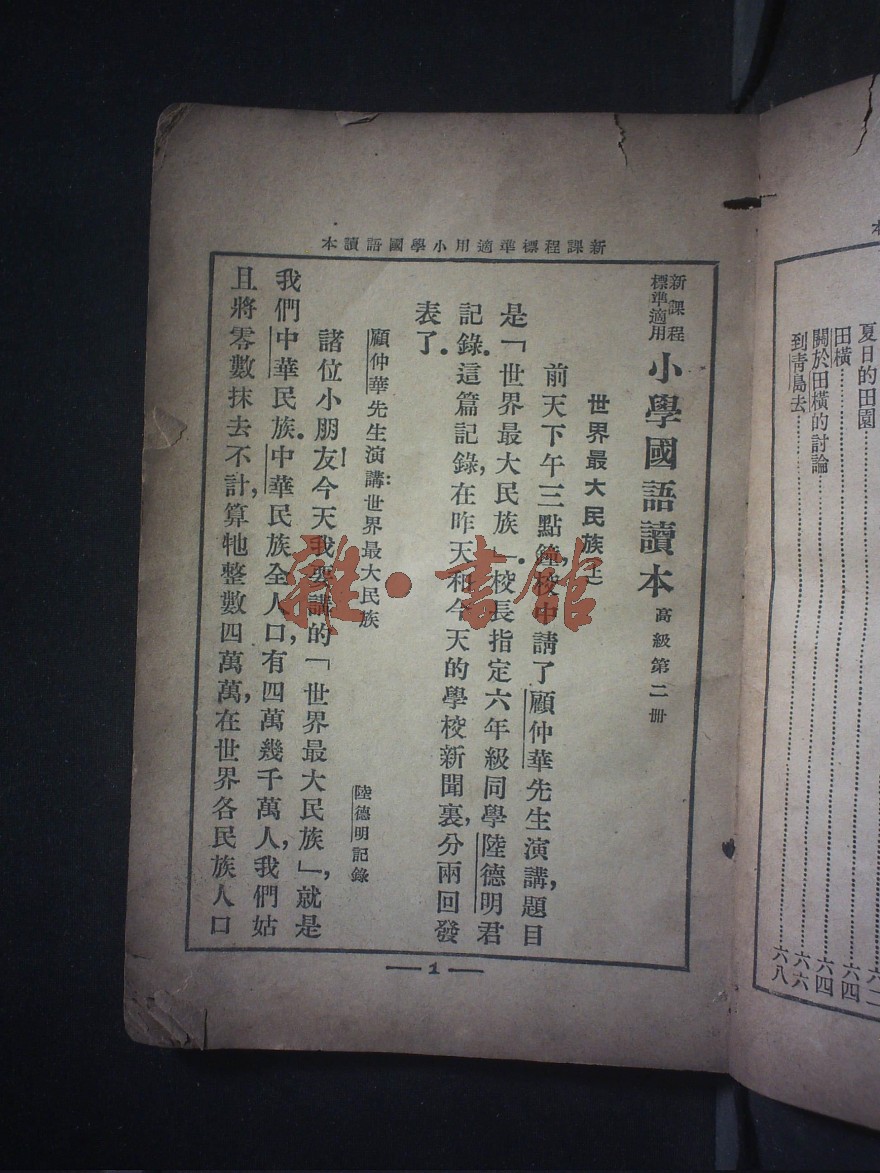 新課程標準適用小學國語讀本
新課程標準適用 小學國語讀本 高級第二冊
世界最大民族(上)
前天下午三點鐘,校中請了顧仲華先生演講,題目
是「世界最大民族」.校長指定六年級同學陸德明君
記錄.這篇記錄,在昨天和今天的學校新聞裏,分兩回發
表了.
顧仲華先生演講:世界最大民族
陸德明記錄
諸位小朋友!今天我要講的「世界最大民族」,就是
我們中華民族.中華民族全人口,有四萬幾千萬人,我們姑
且將零數抹去不計,算牠整數四萬萬,在世界各民族人口
1
本
夏日的田園
田橫 六四
關於田橫的討論 六四
到青島去 六六
六八
雜·書館